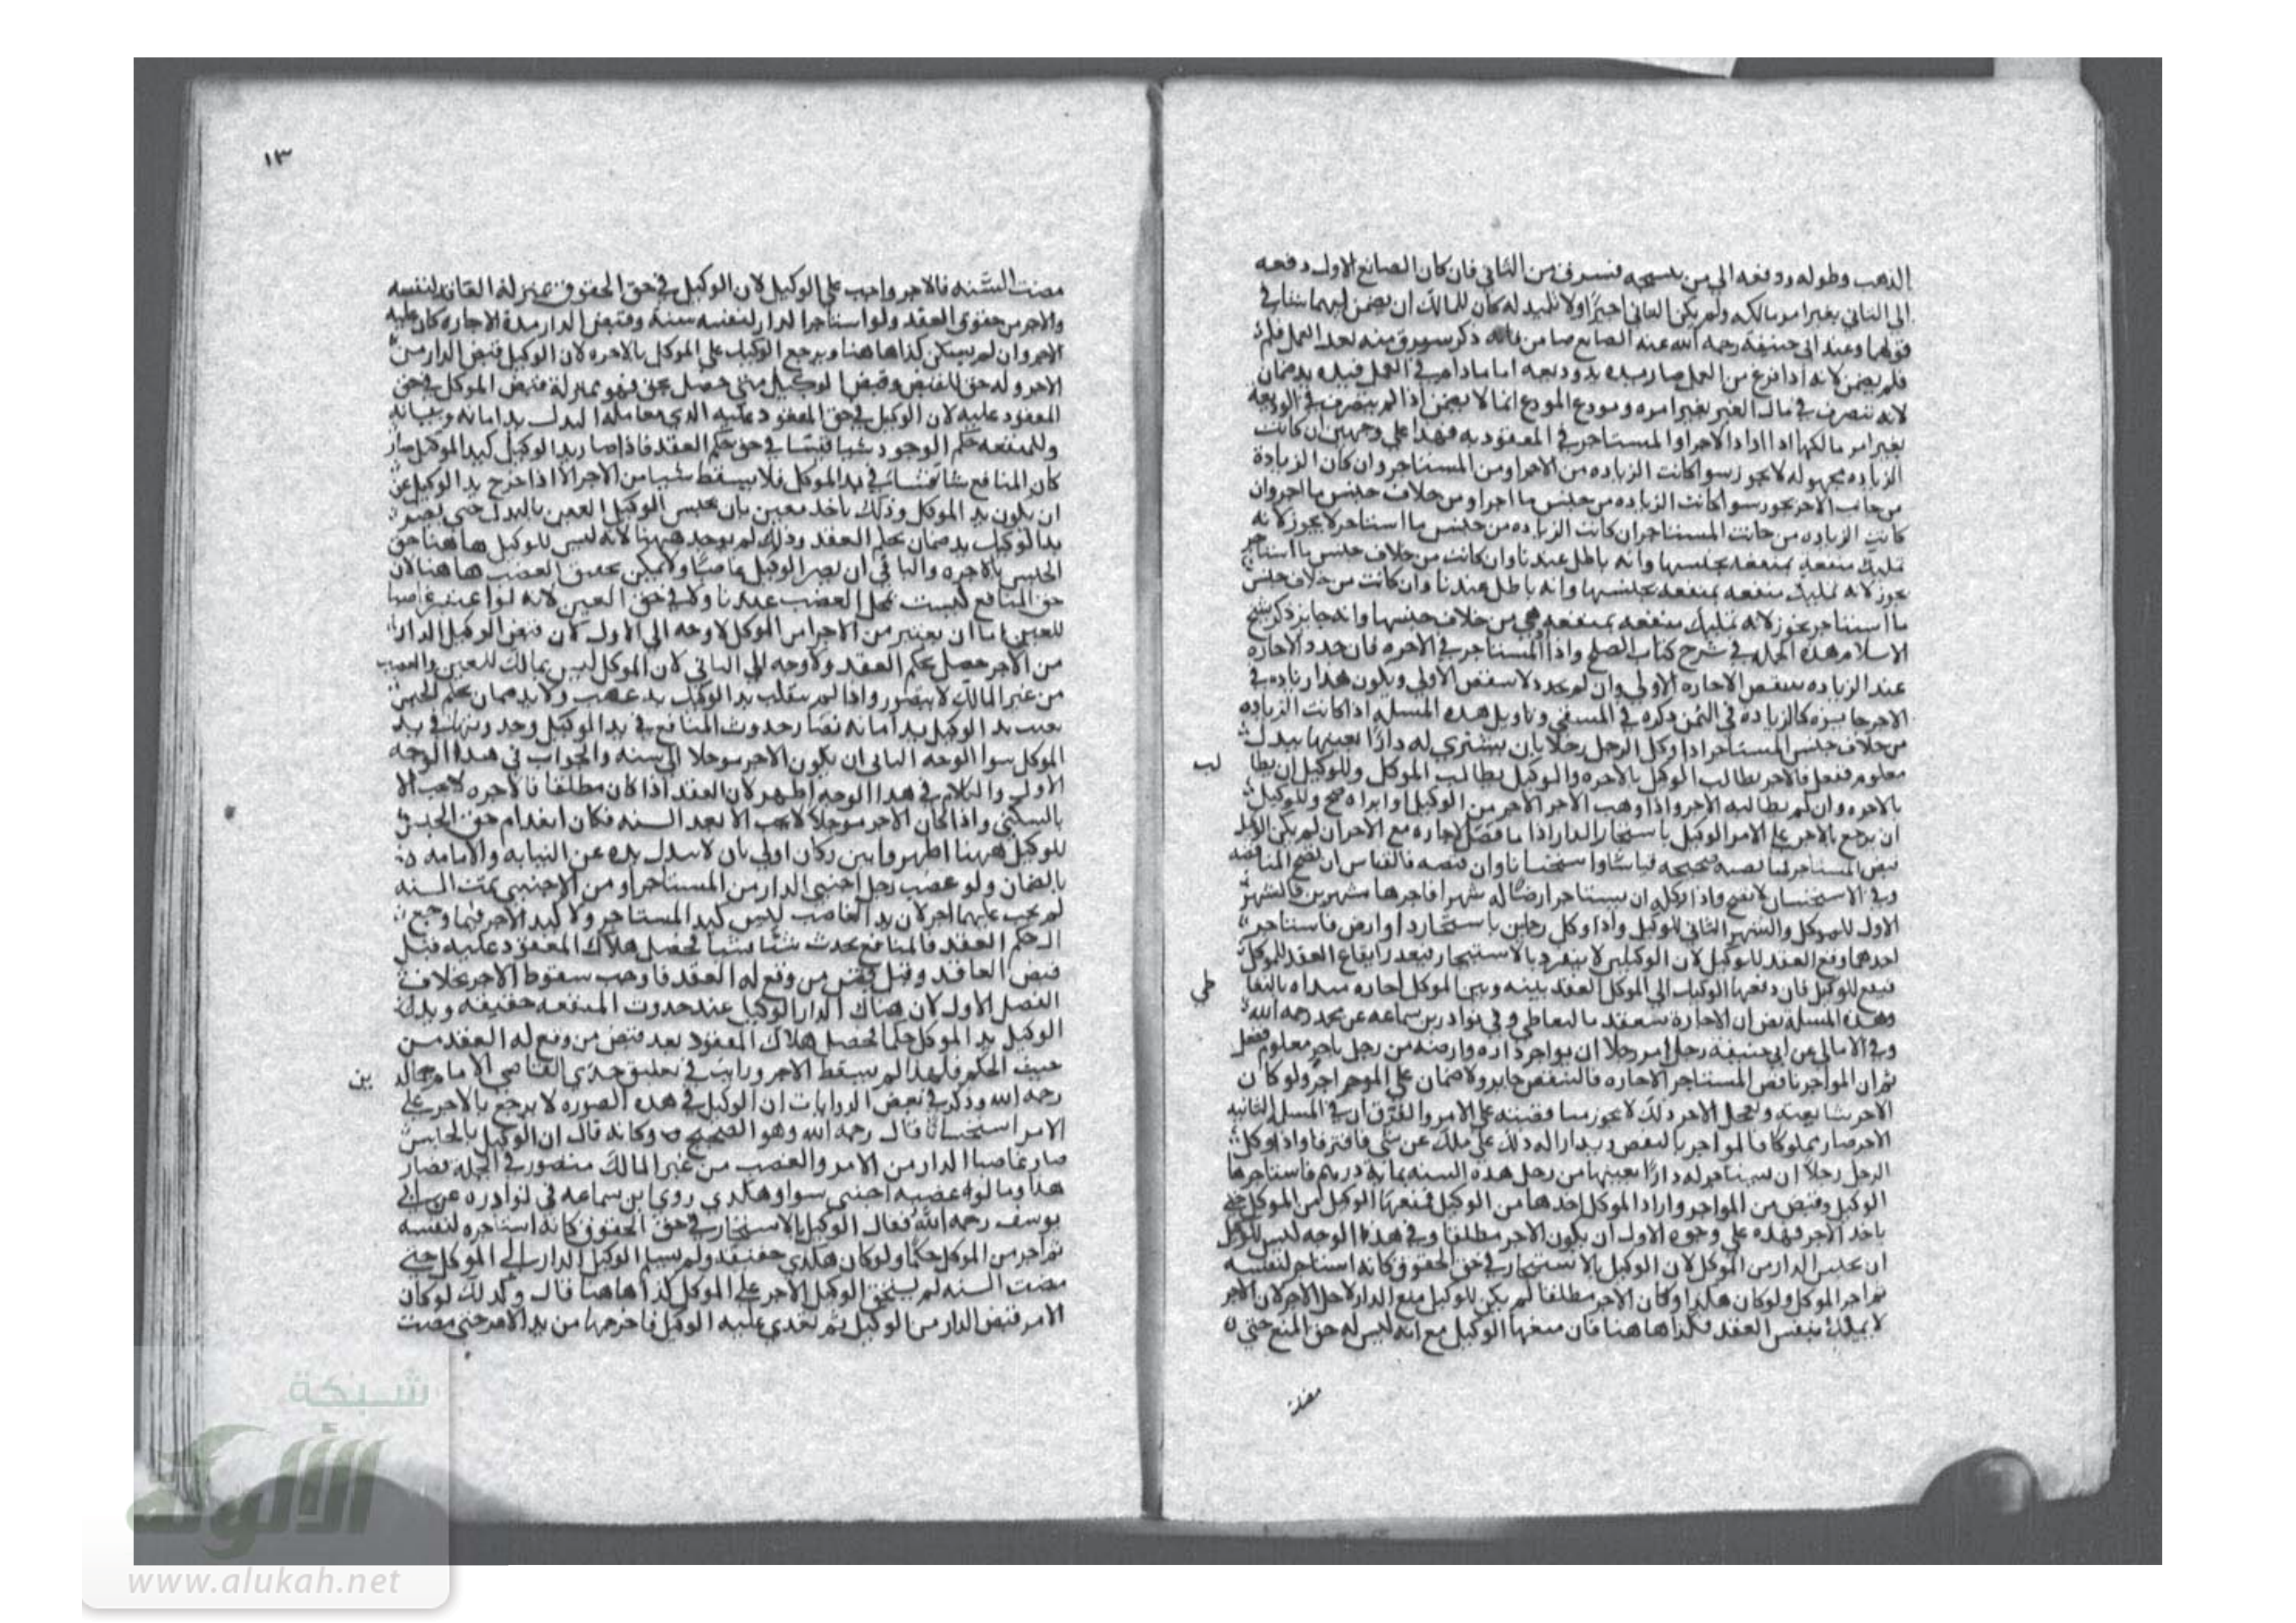 الذهب وطوله ودفعه الي من ينسجه فسرق من الثاني فان كان الصانع الاول دفعه
الي الثاني بغير امر مالكه ولم يكن الثاني اجيرا ولا تلميذ له كان للمالك ان يضمن ايهما شا في
قولهما وعند ابي حنيفة رحمه الله عنه الصانع ضامن ذكر سرق منه بعد العمل فلم
فلم يضمن لانه اذا فرغ من العمل صار يده يد وديعه اما ما دام في العمل فيده يد ضمان
لانه تصرف في مال الغير بغير امره ومودع المودع انما لا يضمن اذا لم يتصرف في الوديعة
بغير امر مالكها اذا اراد الاجر او المستاجر في المعقود به فهذا علي وجهين ان كانت
الزياده مجهوله لا يجوز سوا كانت الزياده من الاجر او من المستاجر وان كان الزيادة
من جانب الاجر يجوز سوا كانت الزياده من جنس ما اجر او من خلاف جنس ما اجر وان
كانت الزياده من جانب المستاجر ان كانت الزياده من جنس ما استاجر لا يجوز لانه
تمليك منفعه بمنفعه بجنسها وانه باطل عندنا وان كانت من خلاف جنس ما استاجر
يجوز لانه تمليك منفعه بمنفعه بجنسها وانه باطل عندنا وان كانت من خلاف جنس
ما استاجر يجوز لانه تمليك منفعه بمنفعه هي من خلاف جنسها وانه جايز ذكر شيخ
الاسلام هذه الجمله في شرح كتاب الصلح واذا المستاجر في الاجره فان جدد الاجاره
عند الزياده ينتقض الاجاره الاولي وان لم يجدد لا ينتقض الاولي ويكون هذا زياده في
الاجر جايزه كالزيادة في الثمن ذكره في المنتقي وتاويل هذه المسله اذا كانت الزياده
من خلاف جنس المستاجر اذا وكل الرجل رجلا بان يشتري له دارا بعينها ببدل
معلوم ففعل فالاجر يطالب الوكيل بالاجره والوكيل يطالب الموكل وللوكيل ان يطا لب
بالاجره وان لم يطالبه الاجر واذا وهب الاجر الاجر من الوكيل او ابراه صح وللوكيل
ان يرجع بالاجر علي الامر الوكيل باستجار الدار اذا ما قض الاجاره مع الاجر ان لم يكن الوكيل
وفي الاستحسان لا تصح واذا وكله ان يستاجر ارضا له شهرا فاجرها شهرين فالشهر
الاول للموكل والشهر الثاني للوكيل واذا وكل رجلين باستجار دار او ارض فاستاجر
احدهما وقع العقد للوكيل لان الوكيلين لا ينفرد بالاستيجار فبعد ايقاع العقد للموكل
فيقع للوكيل فان دفعها الوكيل الي الموكل العقد بينه وبين الموكل اجاره مبتداه بالتعا طي
وهذه المسلة نص ان الاجارة تنعقد بالتعاطي وفي نوادر بن سماعه عن محمد رحمه الله
وفي الامالي عن ابي حنيفة رجل امر رجلا ان يواجر داره وارضه من رجل باجر معلوم ففعل
ثم ان المواجر ناقض المستاجر الاجاره فالنقض جايز ولا ضمان علي الموجر اجر ولو كان
الاجر شا بعينه وتعجل الاجر ذلك لا يجوز مناقضته علي الامر والفرق ان في المسلة الثانيه
الاجر صار مملوكا فالمواجر بالنقض يريد ازاله ذلك علي ملك عن شي فافترقا واذا وكل
الرجل رجلا ان يستاجر له دارا بعينها من رجل هذه السنه بمايه درهم فاستاجرها
الوكيل وقبض من المواجر واراد الموكل اخدها من الوكيل فمنعها الوكيل من الموكل حتي
ياخد الاجر فهذه علي وجوه الاول ان يكون الاجر مطلقا وفي هذا الوجه ليس للوكيل
ان يحبس الدار من الموكل لان الوكيل بالاستيجار في حق الحقوق كانه استاجر لنفسه
ثم اجر الموكل ولو كان هكذا وكان الاجر مطلقا لم يكن للوكيل منع الدار لاجل الاجر لان الاجر
لا يملك بنفس العقد فكذا هاهنا فان منعها الوكيل مع انه ليس له حق المنع حتي
مضت
١٣
مضت السنه فالاجر واجب علي الوكيل لان الوكيل في حق الحقوق بمنزلة العاقد لنفسه
والاجر من حقوق العقد ولو استاجر الدار لنفسه سنة وقبض الدار مدة الاجاره كان عليه
الاجر وان لم يسكن كذا هاهنا ويرجع الوكيل علي الموكل بالاجره لان الوكيل قبض الدار من
الاجر وله حق القبض وقبض الوكيل متي حصل بحق فهو بمنزلة قبض الموكل في حق
المعقود عليه لان الوكيل في حق المعقود عليه الذي معامله البدل يد امانه ونيابه
وللمنفعه حكم الوجود شيا فشيا في حق حكم العقد فاذا صار يد الوكيل كيد الموكل صار
كان المنافع شا فشا في يد الموكل فلا يسقط شيا من الاجر الا اذا خرج يد الوكيل عن
ان يكون يد الموكل وذلك باحد معنيين بان يحبس الوكيل العين بالبدل حتي يصير
يد الوكيل يد ضمان بحكم العقد وذلك لم يوجد ههنا لانه ليس للوكيل هاهنا حق
الحبس بالاجره والثاني ان يصير الوكيل غاصبا ولا يمكن تحقيق الغصب هاهنا لان
حق المنافع ليست بمحل الغصب عندنا ولا في حق العين لانه لو اعتبر غاصبا
للعين اما ان يعتبر من الاجر او من الموكل لا وجه الي الاول لان قبض الوكيل الدار
من الاجر حصل بحكم العقد ولا وجه الي الثاني لان الموكل ليس بمالك للعين والغصب
من غير المالك لا يتصور واذا لم ينقلب يد الوكيل يد غصب ولا يد ضمان بحكم الحبس
بقيت يد الوكيل يد امانه فصار حدوث المنافع في يد الوكيل وحدوثها في يد
الموكل سوا الوجه الثاني ان يكون الاجر موجلا الي سنه والجواب في هذا الوجه
الاول والكلام في هذا الوجه اظهر لان العقد اذا كان مطلقا فالاجره لا يجب الا
بالسكني واذا كان الاجر موجلا لا يجب الا بعد السنه فكان انعدام حق الحبس
للوكيل ههنا اظهر وابين وكان اولي بان لا يبدل يده عن النيابه والامانه
بالضمان ولو غصب رجل اجنبي الدار من المستاجر او من الاجنبي تمت السنه
لم يجب عليهما اجر لان يد الغاصب ليس كيد المستاجر ولا كيد الاجر فيما رجع
الي حكم العقد فالمنافع تحدث شيا شيا فحصل هلاك المعقود عليه قبل
قبض العاقد وقبل قبض من وقع له العقد فاوجب سقوط الاجر بخلاف
الفصل الاول لان هناك الدار الوكيل عند حدوث المنفعه حقيقه ويد
الوكيل يد الموكل حكما فحصل هلاك المعقود بعد قبض من وقع له العقد من
حيث الحكم فلهذا لم يسقط الاجر ورايت في تعليق جدي القاضي الامام جمال الد ين
رحمه الله وذكر في بعض الروايات ان الوكيل في هذه الصوره لا يرجع بالاجر علي
الامر استحسانا قال رحمه الله وهو الصحيح وكانه قال ان الوكيل بالحابس
صار غاصبا الدار من الامر والغصب من غير المالك متصور في الجملة فصار
هذا وما لو غصبه اجنبي سوا وهكذي روي ابن سماعه في نوادره عن ابي
يوسف رحمه الله فقال الوكيل بالاستجار في حق الحقوق كانه استاجره لنفسه
ثم اجر من الموكل حكما ولو كان هكذي حقيقه ولم يسلم الوكيل الدار الي الموكل حتي
مضت السنه لم يستحق الوكيل الاجر علي الموكل كذا هاهنا قال وكذلك لو كان
الامر قبض الدار من الوكيل ثم تعدي عليه الوكيل فاخرجها من يد الامر حتي مضت
شبكة
الألوكة
www.alukah.net